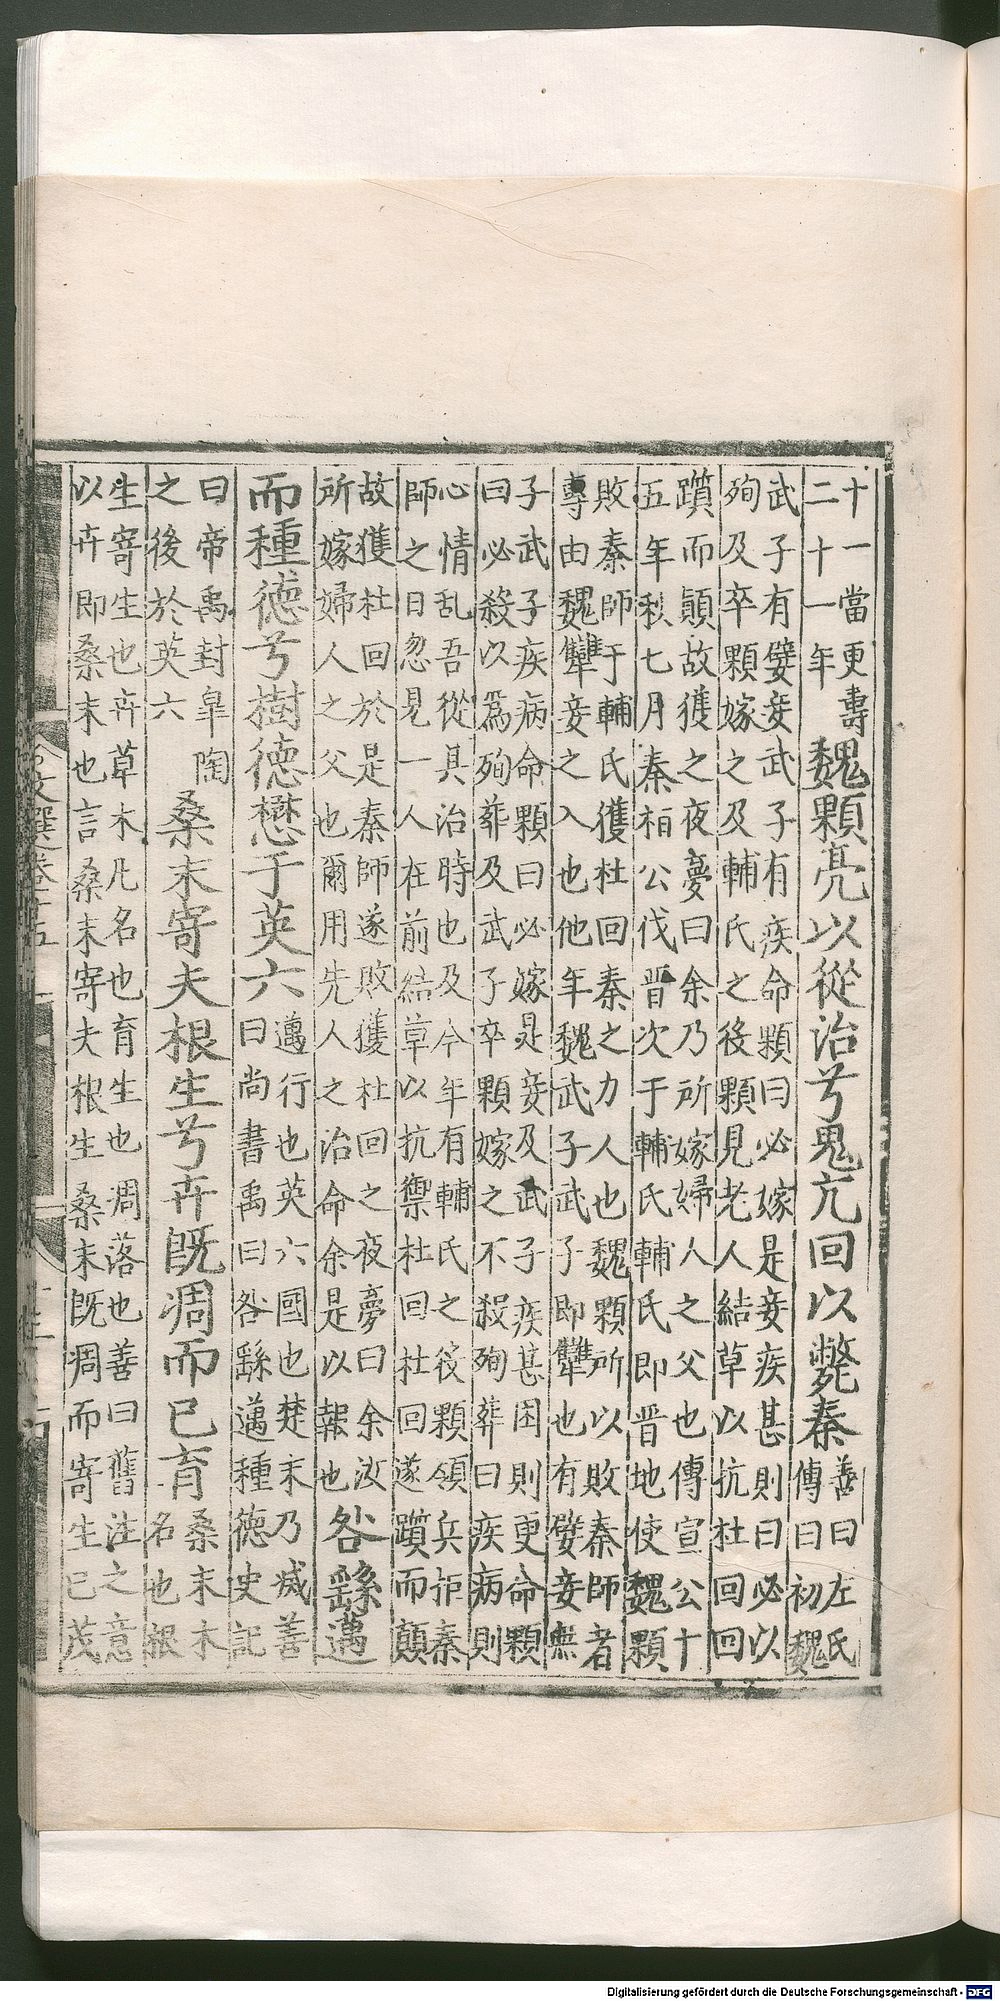 十一當更壽
二十一年
魏顆亮以從治兮鬼亢回以斃秦
善曰左氏
傳曰初魏
武子有嬖妾武子有疾命顆曰必嫁是妾疾甚則曰必以
殉及卒顆嫁之及輔氏之後顆見老人結草以抗杜回回
躓而顚故獲之夜夢曰余乃所嫁婦人之父也傳宣公十
五年秋七月秦桓公伐晋次于輔氏輔氏即晋地使魏顆
敗秦師于輔氏獲杜回秦之力人也魏顆所以敗秦師者
專由魏犫妾之入也他年魏武子武子即犫也有嬖妾無
子武子疾病命顆曰必嫁是妾及武子疾甚困則更命顆
曰必殺以爲殉葬及武子卒顆嫁之不殺殉葬曰疾病則
心情乱吾從其治時也及今年有輔氏之役顆領兵拒秦
師之日忽見一人在前結草以抗禦杜回杜回遂躓而顛
故獲杜回於是秦師遂敗獲杜回之夜夢曰余汝
所嫁婦人之父也爾用先人之治命余是以報也
咎繇邁
而種德兮樹德懋于英六
邁行也英六國也楚末乃滅善
曰尚書禹曰咎繇邁種德史記
曰帝禹封皐陶
之後於英六
桑末寄夫根生兮卉既凋而已育
桑末木
名也根
生寄生也卉草木凡名也育生也凋落也善曰舊注之意
以卉即桑末也言桑末寄夫根生桑末既凋而寄生已茂
文選卷十五